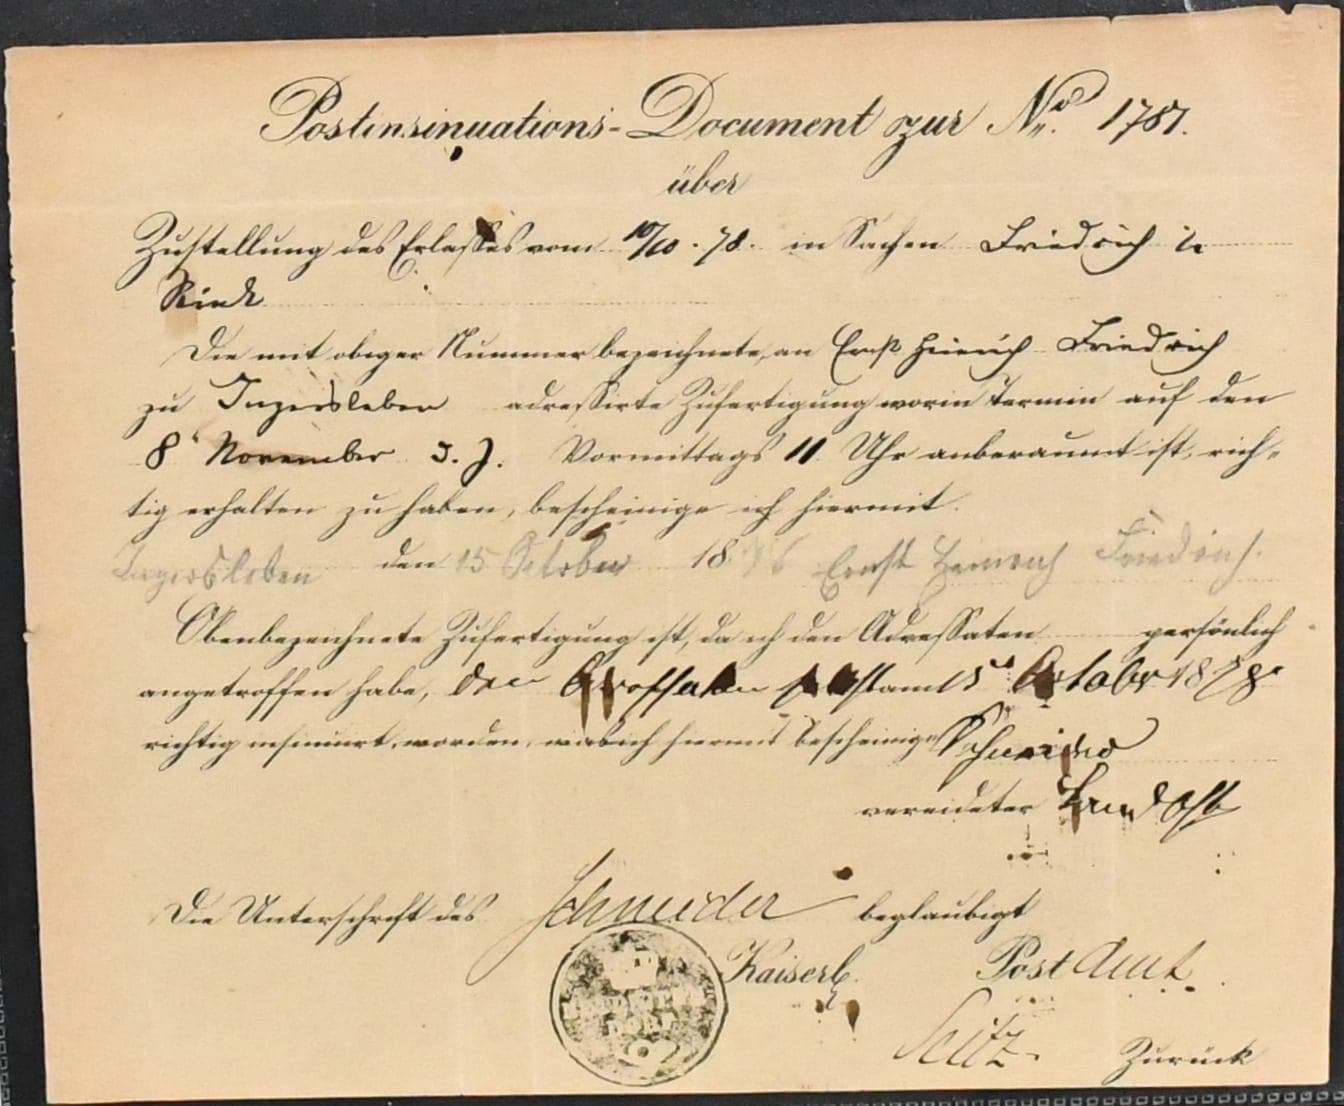 Postinsinuations-Document zur No. 1781.
über
Zustellung des Erlasses vom 10/10. 78. in Sachen Friedrich
Die mit obiger Nummer bezeichnete, an Ernst Heinrich Friedrich
zu Ingersleben adressirte Zufertigung worin Termin auf den
8. November d. J. Vormittags 11 Uhr anberaumt ist, rich-
tig erhalten zu haben, bescheinige ich hiermit.
Ingersleben den 15 October 1878 Ernst Heinrich Friedrich.
Obenbezeichnete Zufertigung ist, da ich den Adressaten persönlich
angetroffen habe, October 1878
richtig insinuirt worden, was ich hiermit bescheinige Schneider
vereideter
Die Unterschrift des Schneider beglaubigt
Kaiserl. Post Amt.
Seitz
Zurück